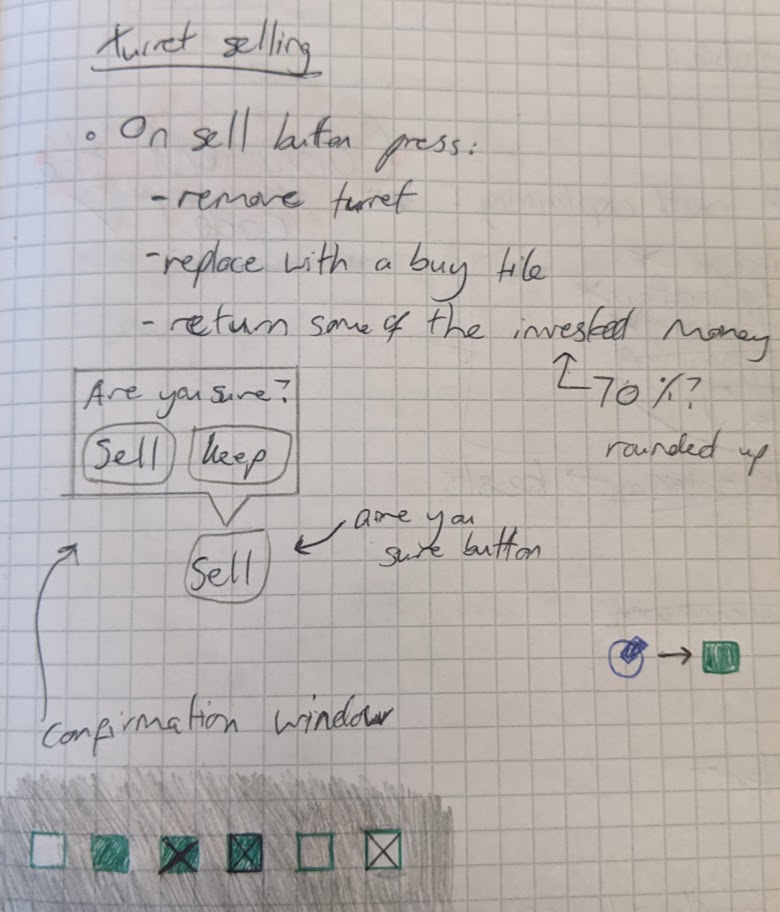 turret selling
• On sell button press:
- remove turret
- replace with a buy tile
- return some of the invested money
70%?
rounded up
Are you sure?
Sell keep
Sell
are you
sure button
Confirmation window